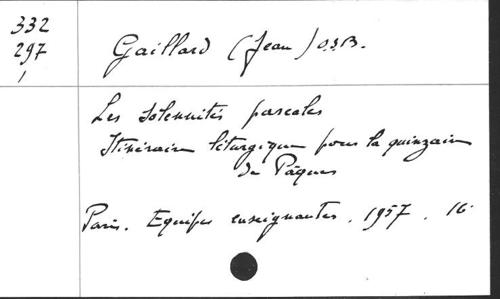 332
297
1
Gaillard (Jean) O.S.B.
Les solennités pascales
Itinéraire liturgique pour la quinzaine
de Pâques
Paris. Equipes enseignantes. 1957. 16°